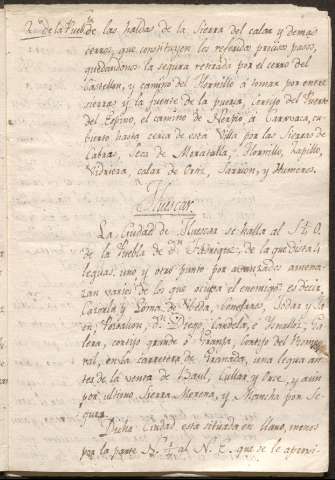 de las haldas de la Sierra del calar y demas
cerros, que constituyen los referidos precisos pasos,
quedandonos la segura retirada por el cerro del
Castellon, y camino del Hornillo á tomar por entre
sierras y la fuente de la puerca, Cortijo del Puerto
del Espino, el camino de Nerpio á Caravaca, cu-
bierto hasta cerca de esta Villa por las Sierras de
Cabras, Seca de Moratalla, Hornillo, Zapillo,
Vidriera, calar de Cruz, Sarrion, y Humeros.
Huescar
La Ciudad de Huescar se halla al S. O.
de la Puebla de Dn. Fadrique, de la que dista 4
leguas, uno y otro punto por avanzados amena-
zan varios de los que ocupa el enemigo: es decir
Cazorla y Loma de Ubeda,
Dn. Diego
lera, cortijo grande
ral, en la carretera de Granada, una legua an-
tes de la venta de Baul, Cullar y Orce, y aun
por ultimo, Sierra Morena, y Mancha por Se-
gura.
Dicha Ciudad está situada en llano, menos
por la parte N. al N. E. que se le aproxi-